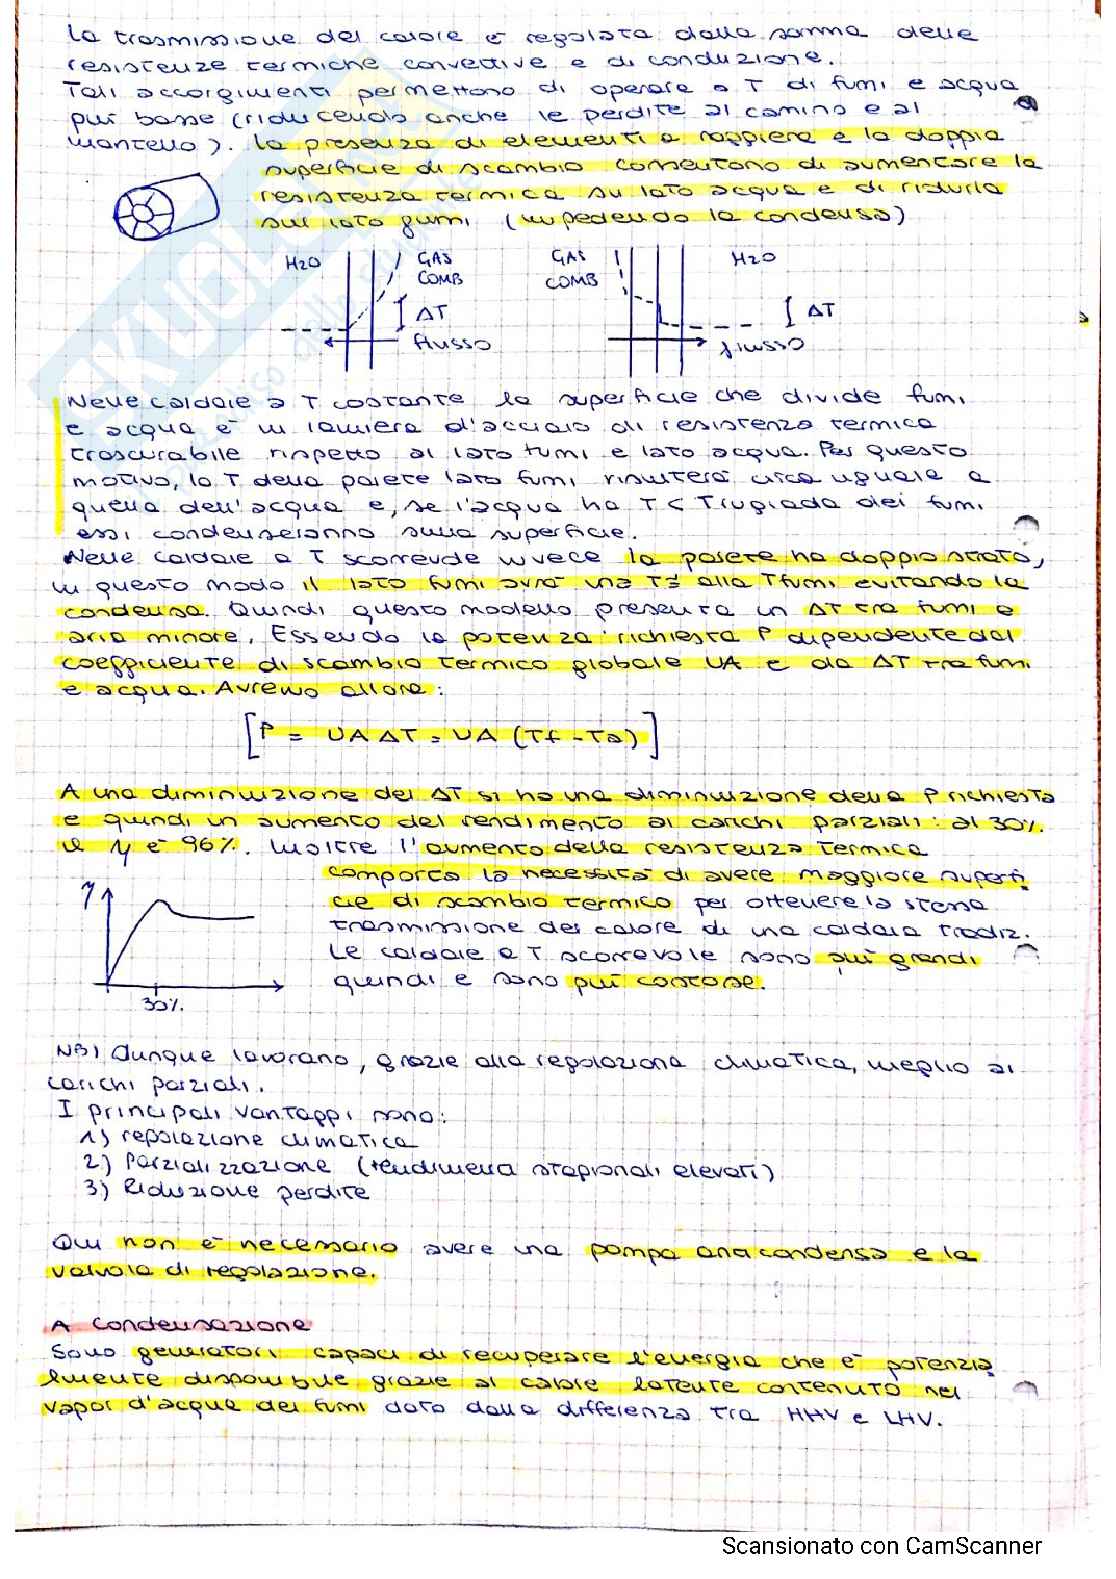 La trasmissione del calore è regolata dalla somma delle
resistenze termiche convettive e di conduzione.
Tali accorgimenti permettono di operare a T di fumi e acqua
più basse (riducendo anche le perdite al camino e al
mantello). La presenza di elementi a raggiera e la doppia
superficie di scambio consentono di aumentare la
resistenza termica su lato acqua e di ridurla
sul lato fumi (impedendo la condensa)
H2O GAS COMB ΔT flusso
GAS COMB H2O ΔT flusso
Nelle caldaie a T costante la superficie che divide fumi
e acqua è in lamiera d'acciaio di resistenza termica
trascurabile rispetto al lato fumi e lato acqua. Per questo
motivo, la T della parete lato fumi risulterà circa uguale a
quella dell'acqua e, se l'acqua ha T < Trugiada dei fumi
essi condenseranno sulla superficie.
Nelle caldaie a T scorrevole invece la parete ha doppio strato,
in questo modo il lato fumi avrà una T ≅ alla Tfumi evitando la
condensa. Quindi questo modello presenta un ΔT tra fumi e
aria minore. Essendo la potenza richiesta P dipendente dal
coefficiente di scambio termico globale UA e da ΔT tra fumi
e acqua. Avremo allora:
[P = UAΔT = UA (Tf - Ta)]
A una diminuizione del ΔT si ha una diminuizione della P richiesta
e quindi un aumento del rendimento ai carichi parziali: al 30%.
il η è 96%. Inoltre l'aumento della resistenza termica
comporta la necessità di avere maggiore superfi
cie di scambio termico per ottenere la stessa
trasmissione del calore di una caldaia tradiz.
Le caldaie a T scorrevole sono più grandi
quindi e sono più costose.
η
30%.
NB) Dunque lavorano, grazie alla regolazione climatica, meglio ai
carichi parziali.
I principali vantaggi sono:
1) regolazione climatica
2) Parzializzazione (rendimenti stagionali elevati)
3) Riduzione perdite
Qui non è necessario avere una pompa anticondensa e la
valvola di regolazione.
A condensazione
Sono generatori capaci di recuperare l'energia che è potenzia
lmente disponibile grazie al calore latente contenuto nel
vapor d'acqua dei fumi dato dalla differenza tra HHV e LHV.
Scansionato con CamScanner